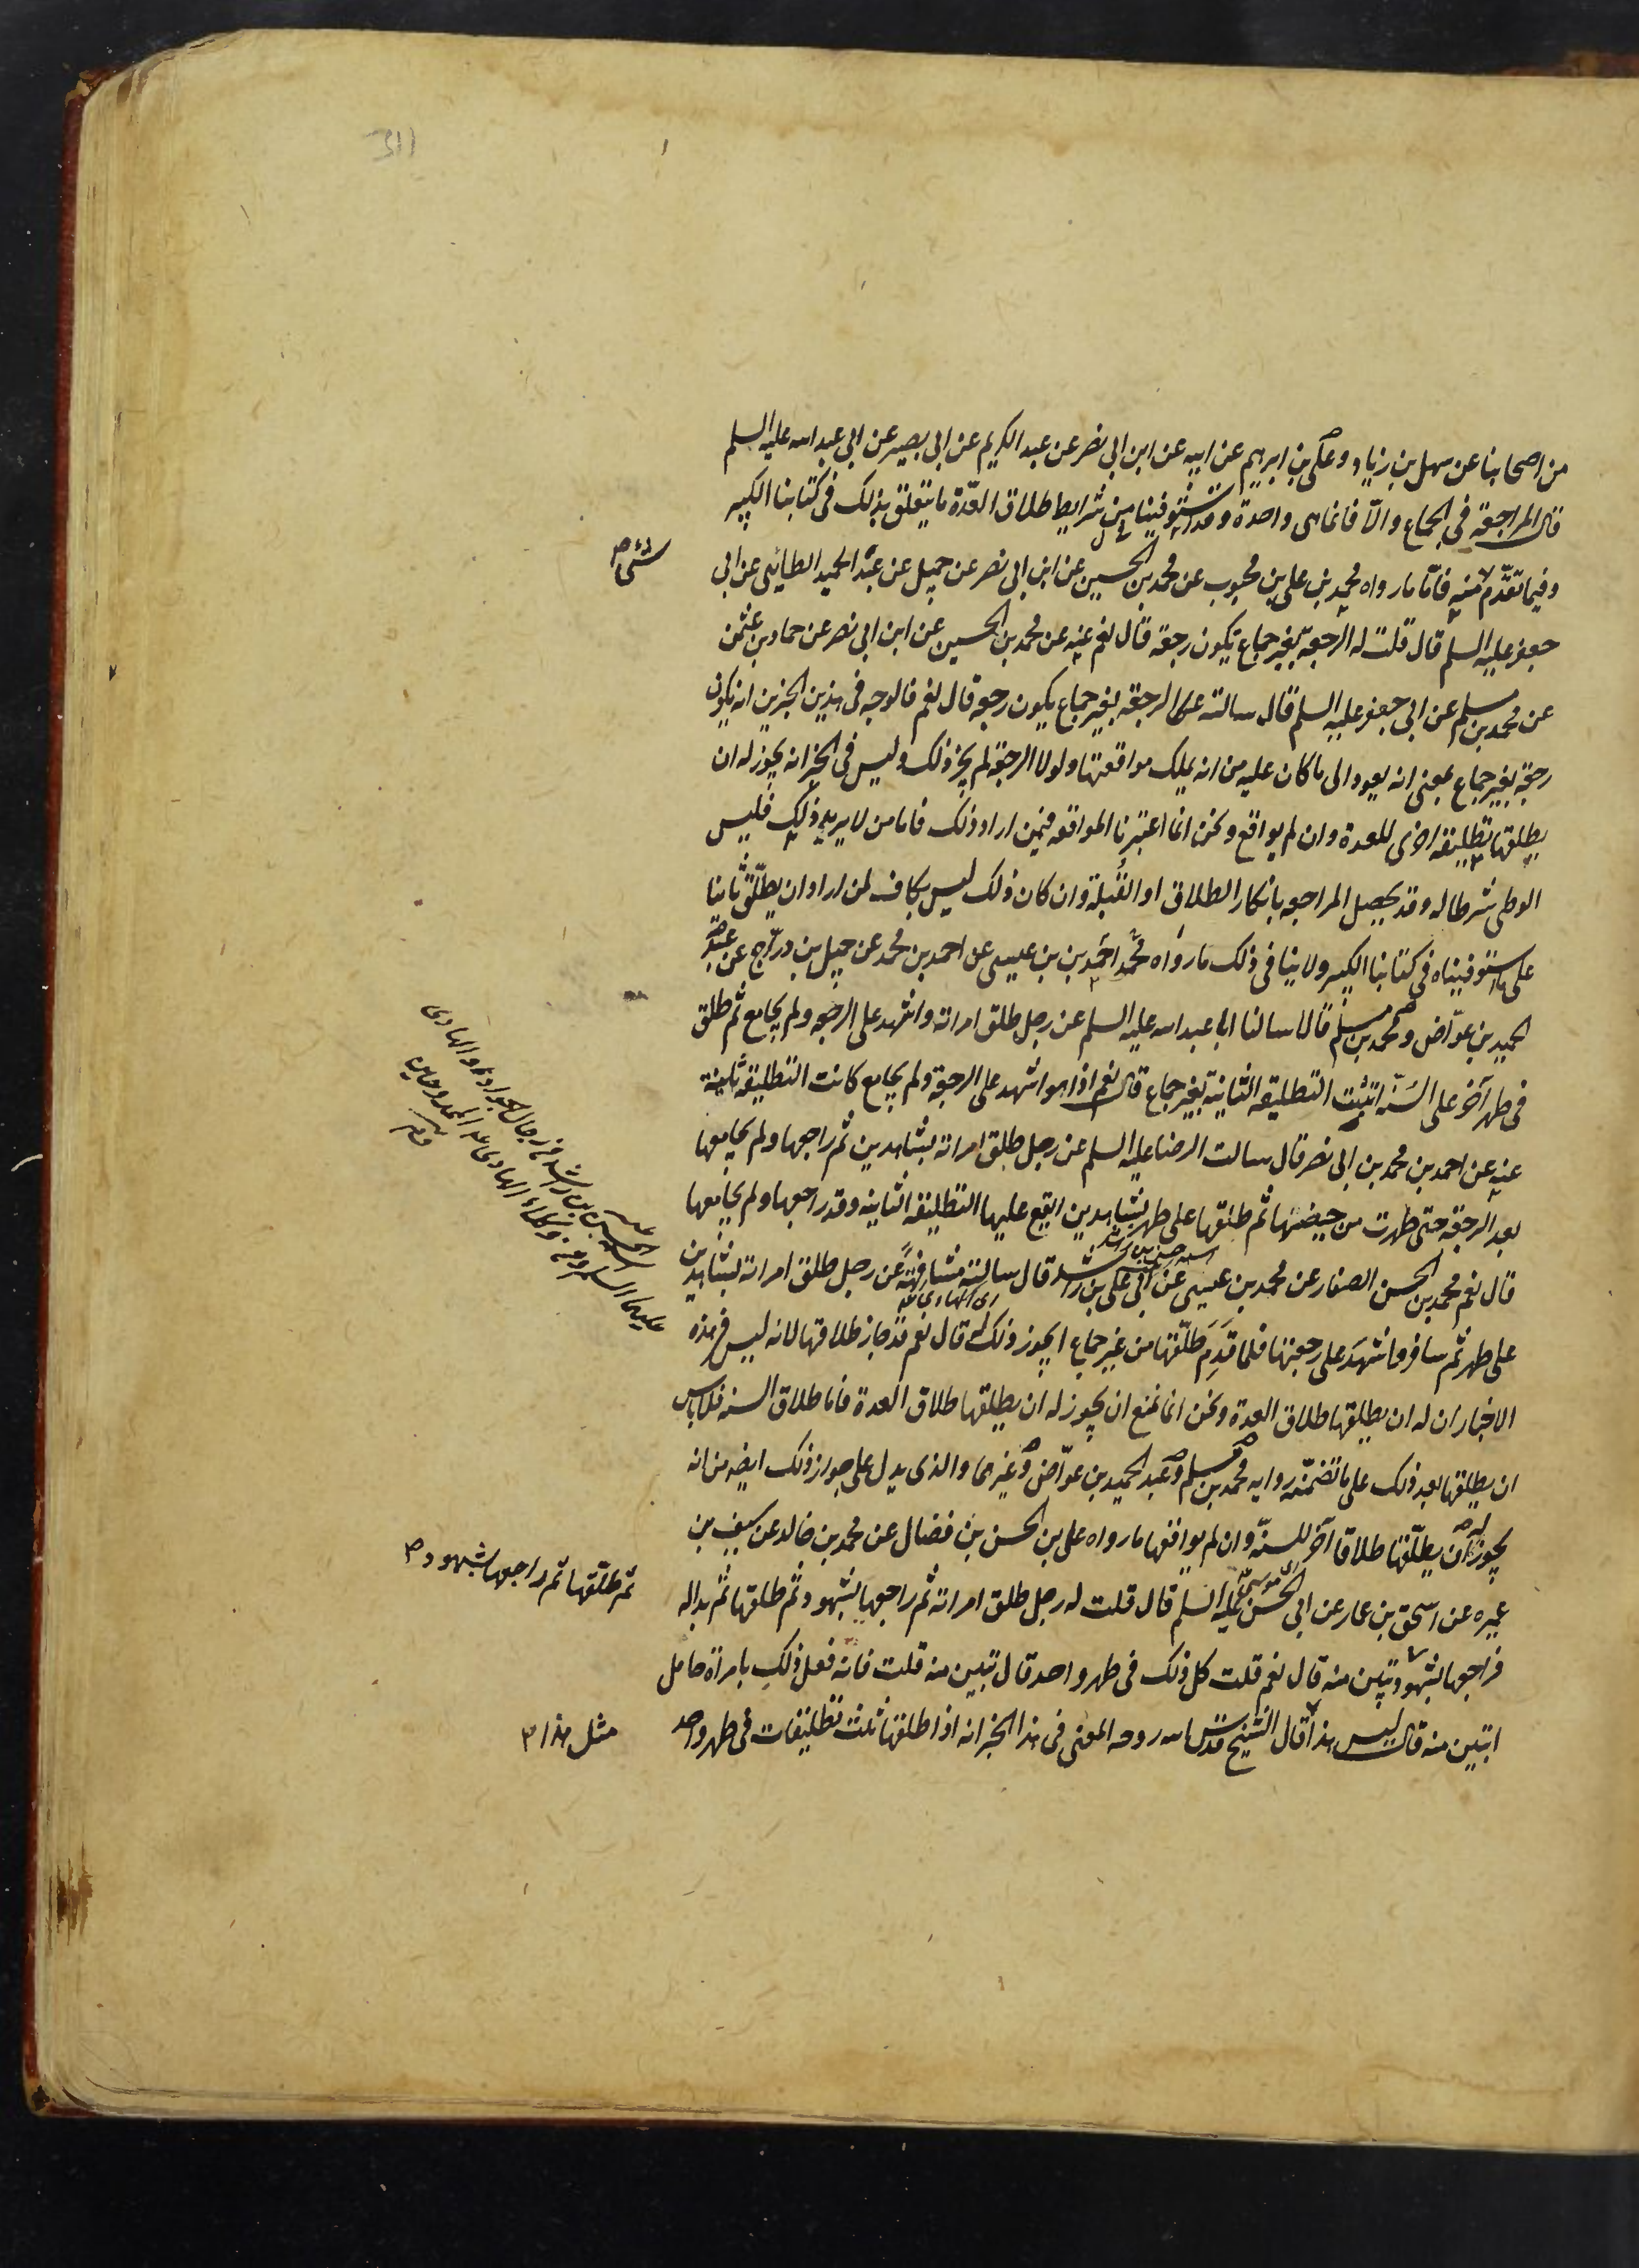 311
من اصحابنا عن سهل بن زياد وعلى بن ابرهيم عن ابيه عن ابن ابى نصر عن عبد الكريم عن ابى بصير عن ابى عبد الله عليه السلم
قال المراجعة فى الجماع والّا فانما هى واحدة وقد استوفينا من شرايط طلاق العدّة ما يتعلق بذلك فى كتابنا الكبير
وفيما تقدّم منه فامّا ما رواه محمد بن على بن محبوب عن محمد بن الحسين عن ابن ابى نصر عن جميل عن عبد الحميد الطائى عن ابى
جعفر عليه السلم قال قلت له الرجعة بغير جماع يكون رجعة قال نعم عنه عن محمد بن الحسين عن ابن ابى نصر عن حماد بن عثمن
عن محمد بن مسلم عن ابى جعفر عليه السلم قال سالته عن الرجعة بغير جماع يكون رجعة قال نعم فالوجه فى هذين الخبرين انه يكون
رجعة بغير جماع بمعنى انه يعود الى ما كان عليه من انه يملك مواقعتها ولولا الرجعة لم يجز ذلك وليس فى الخبر انه يجوز له ان
يطلقها تطليقة اخرى للعدة وان لم يواقع ونحن انما اعتبرنا المواقعه فيمن اراد ذلك فاما من لا يريد ذلك فليس
الوطى شرطا له وقد يحصل المراجعه بانكار الطلاق او القُبلة وان كان ذلك ليس بكاف لمن اراد ان يطلّق ثانيا
على ما استوفيناه فى كتابنا الكبير ولا ينافى ذلك ما رواه محمد احمد بن بن عيسى عن احمد بن محمد عن جميل بن درّاج عن عبد
الحميد بن عوّاض ومحمد بن مسلم قالا سالنا ابا عبد الله عليه السلم عن رجل طلق امراته واشهد على الرجعه ولم يجامع ثم طلق
فى طهر آخر على السُنّه اتثبت التطليقه الثانية بغير جماع قال نعم اذا هو اشهد على الرجعة ولم يجامع كانت التطليقه ثابتة
عنه عن احمد بن محمد بن ابى نصر قال سالت الرضا عليه السلم عن رجل طلق امراته بشاهدين ثم راجعها ولم يجامعها
بعد الرجعة حتى طهرت من حيضتها ثم طلقها على طهر بشاهدين ايقع عليها التطليقه الثانيه وقد راجعها ولم يجامعها
قال نعم محمد بن الحسن الصفار عن محمد بن عيسى عن ابى على بن راشد قال سالته مشافهةً عن رجل طلق امراته بشاهدين
على طهر ثم سافر واشهَد على رجعتها فلما قَدِمَ طلّقها من غير جماع ايجوز ذلك قال نعم قد جاز طلاقها لانه ليس فى هذه
الاخبار ان له ان يطلقها طلاق العدة ونحن انما نمنع ان يجوز له ان يطلقها طلاق العدة فاما طلاق السنه فلا باس
ان يطلقها بعد ذلك على ما تضمنّه روايه محمد بن مسلم وعبد الحميد بن عوّاض وغيرهما والذى يدل على جواز ذلك ايضا من انه
يجوز له ان يطلّقها طلاقا آخر للسنّه وان لم يواقعها ما رواه على بن الحسن بن فضال عن محمد بن خالد عن سيف بن
عميره عن اسحق بن عمار عن ابى الحسن عليه السلم قال قلت له رجل طلق امراته ثم راجعها بشهود ثم طلقها ثم بدا له
فراجعها بشهود تبين منه قال نعم قلت كل ذلك فى طهر واحد قال تبين منه قلت فانه فعل ذلك بامراة حامل
اتبين منه قال ليس هذا قال الشيخ قدّس الله روحه المعنى فى هذا الخبر انه اذا طلقها ثلث تطليقات فى طهر واحد
ثم طلّقها ثم راجعها بشهود
مثل هذا